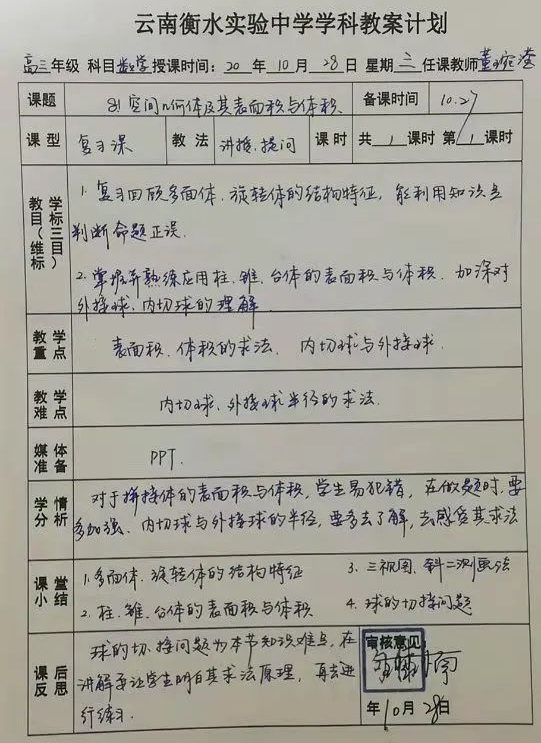 云南衡水实验中学学科教案计划
高三年级 科目数学授课时间：20 年 10 月 28 日 星期 三 任课教师董
课题 8.1 空间几何体及其表面积与体积. 备课时间 10.27
课型 复习课 教法 讲授.提问 课时 共 1 课时 第 1 课时
教学目标（三维目标）
1. 复习回顾多面体、旋转体的结构特征，能利用知识点
判断命题正误.
2. 掌握并熟练应用柱、锥、台体的表面积与体积. 加深对
外接球、内切球的理解.
教学重点 表面积、体积的求法、内切球与外接球.
教学难点 内切球、外接球半径的求法.
媒体准备 PPT.
学情分析 对于拼接体的表面积与体积，学生易犯错，在做题时，要
多加强、内切球与外接球的半径，要多去了解，去感受其求法
课堂小结 1. 多面体、旋转体的结构特征 3. 三视图、斜二测画法
2. 柱、锥、台体的表面积与体积 4. 球的切接问题
课后反思 球的切、接问题为本节知识难点，在
讲解要让学生明白其求法原理，再去进
行练习.
审核意见
年10月28日